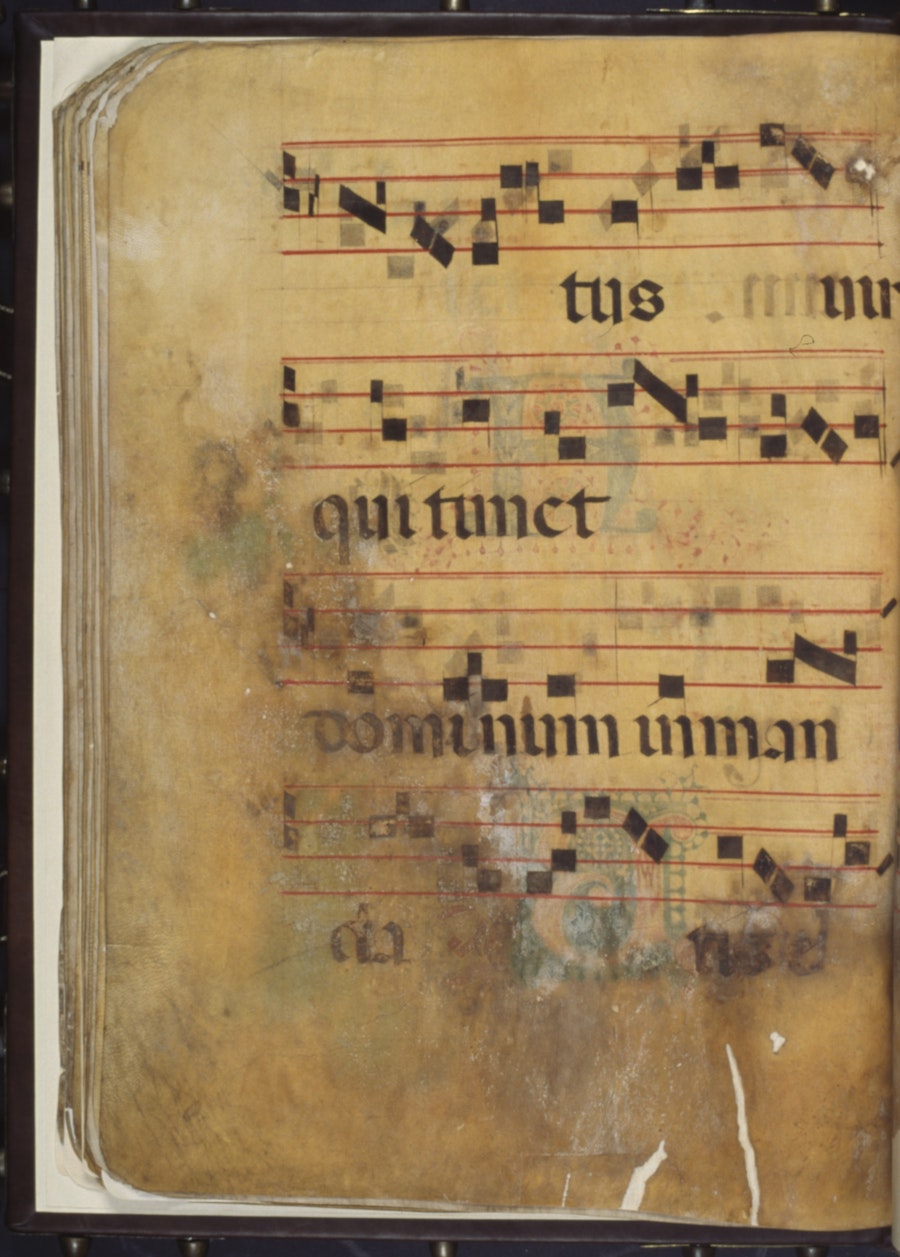 tus uir
qui timet
dominum in man
da tis